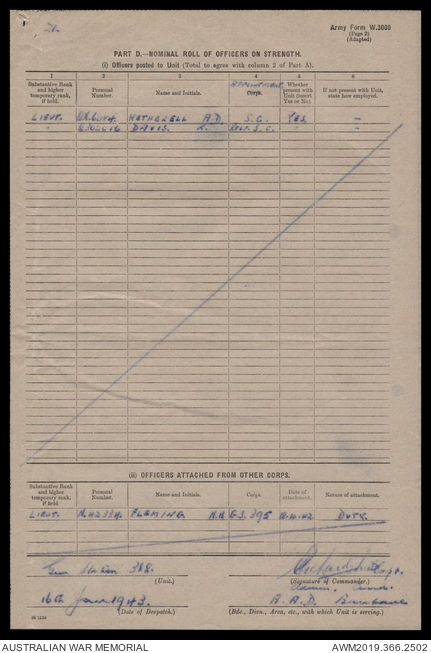 Army Form W.3008
(Page 2)
(Adapted)
PART D.—NOMINAL ROLL OF OFFICERS ON STRENGTH.
(i) Officers posted to Unit (Total to agree with column 2 of Part A).
1 2 3 4 5 6
Substantive Rank and higher temporary rank, if held.
Personal Number.
Name and Initials.
Appointment
Corps.
Whether present with Unit (insert Yes or No).
If not present with Unit, state how employed.
LIEUT. HETHERELL A.D. S.C. YES. –
" DAVIS. S.C. " –
(ii) OFFICERS ATTACHED FROM OTHER CORPS.
Substantive Rank and higher temporary rank, if held.
Personal Number.
Name and Initials.
Corps.
Date of attachment.
Nature of attachment.
LIEUT. FLEMING G.S. 395 DUTY.
Gun Station 388.
(Unit.)
(Signature of Commander.)
16th 1943.
(Date of Despatch.)
A.A.D. Brisbane
(Bde., Divn., Area, etc., with which Unit is serving.)
AUSTRALIAN WAR MEMORIAL
AWM2019.366.2502